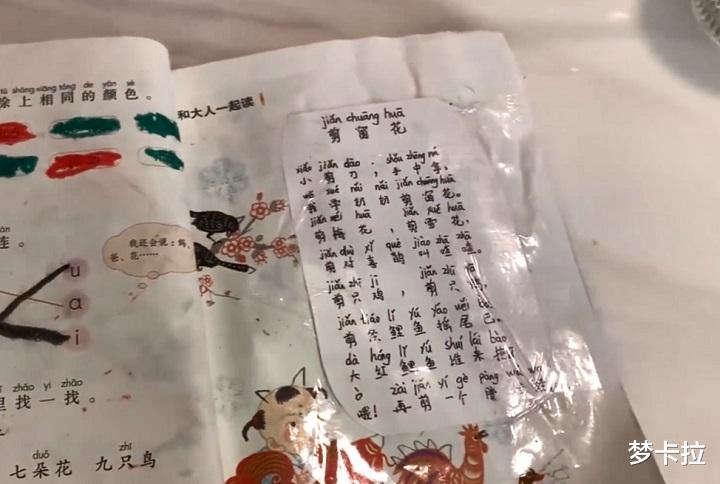 tú shàng xiāng tóng de yán sè
涂上相同的颜色。
连。
u
a
i
zhǎo yi zhǎo
里找一找。
duǒ zhī
七朵花 九只鸟
和大人一起读
我还会说：妈、
爸、花……
jiǎn chuāng huā
剪窗花
xiǎo jiǎn dāo , shǒu zhōng ná
小剪刀，手中拿，
wǒ xué nǎi nai jiǎn chuāng huā
我学奶奶剪窗花。
jiǎn méi huā jiǎn xuě huā
剪梅花，剪雪花，
jiǎn duì xǐ què jiào zhā zhā
剪对喜鹊叫喳喳。
jiǎn zhī jī jiǎn zhī
剪只鸡，剪只
jiǎn tiáo lǐ yú yáo wěi
剪条鲤鱼摇尾巴。
dà hóng lǐ yú shuí lái bào
大红鲤鱼谁来抱
ò zài jiǎn yí gè pàng wá
哦！再剪一个胖
梦卡拉